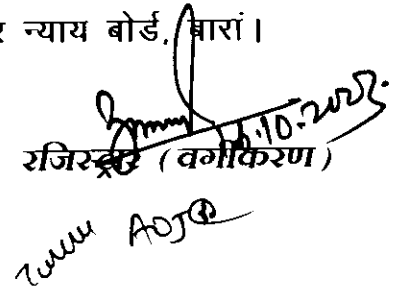 र न्याय बोर्ड, बारां।
10.2023.
रजिस्ट्रार (वर्गीकरण)
ADJ